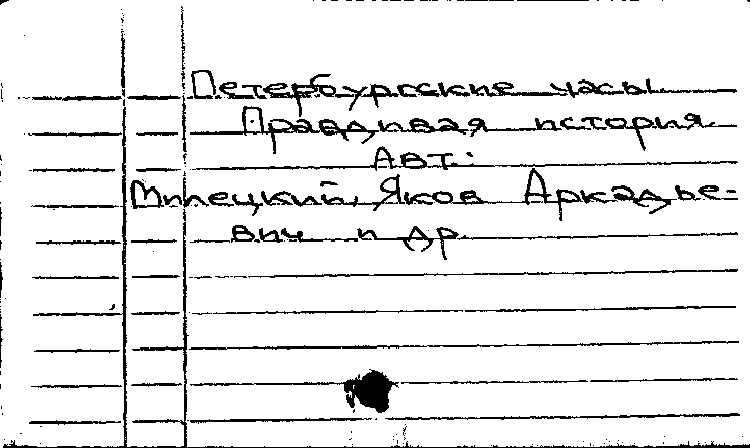 Петербургские часы
Правдивая история
Авт.:
Милецкий, Яков Аркадье-
вич и др